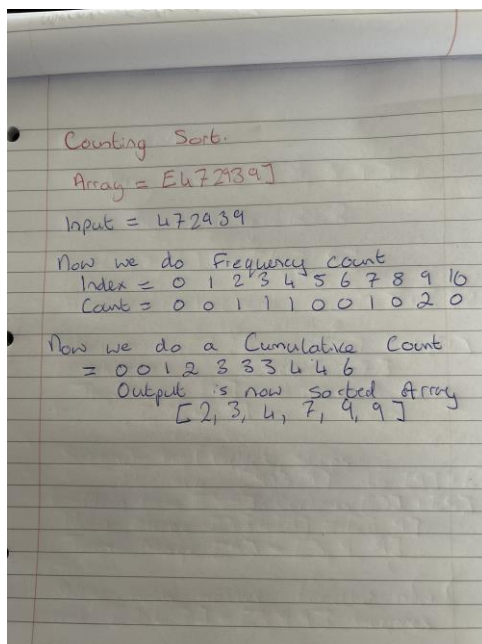 Counting Sort.
Array = [472939]
Input = 472939
Now we do Frequency count
Index = 0 1 2 3 4 5 6 7 8 9 10
Count = 0 0 1 1 1 0 0 1 0 2 0
Now we do a Cumulative Count
= 0 0 1 2 3 3 3 4 4 6
Output is now sorted Array
[2, 3, 4, 7, 9, 9]